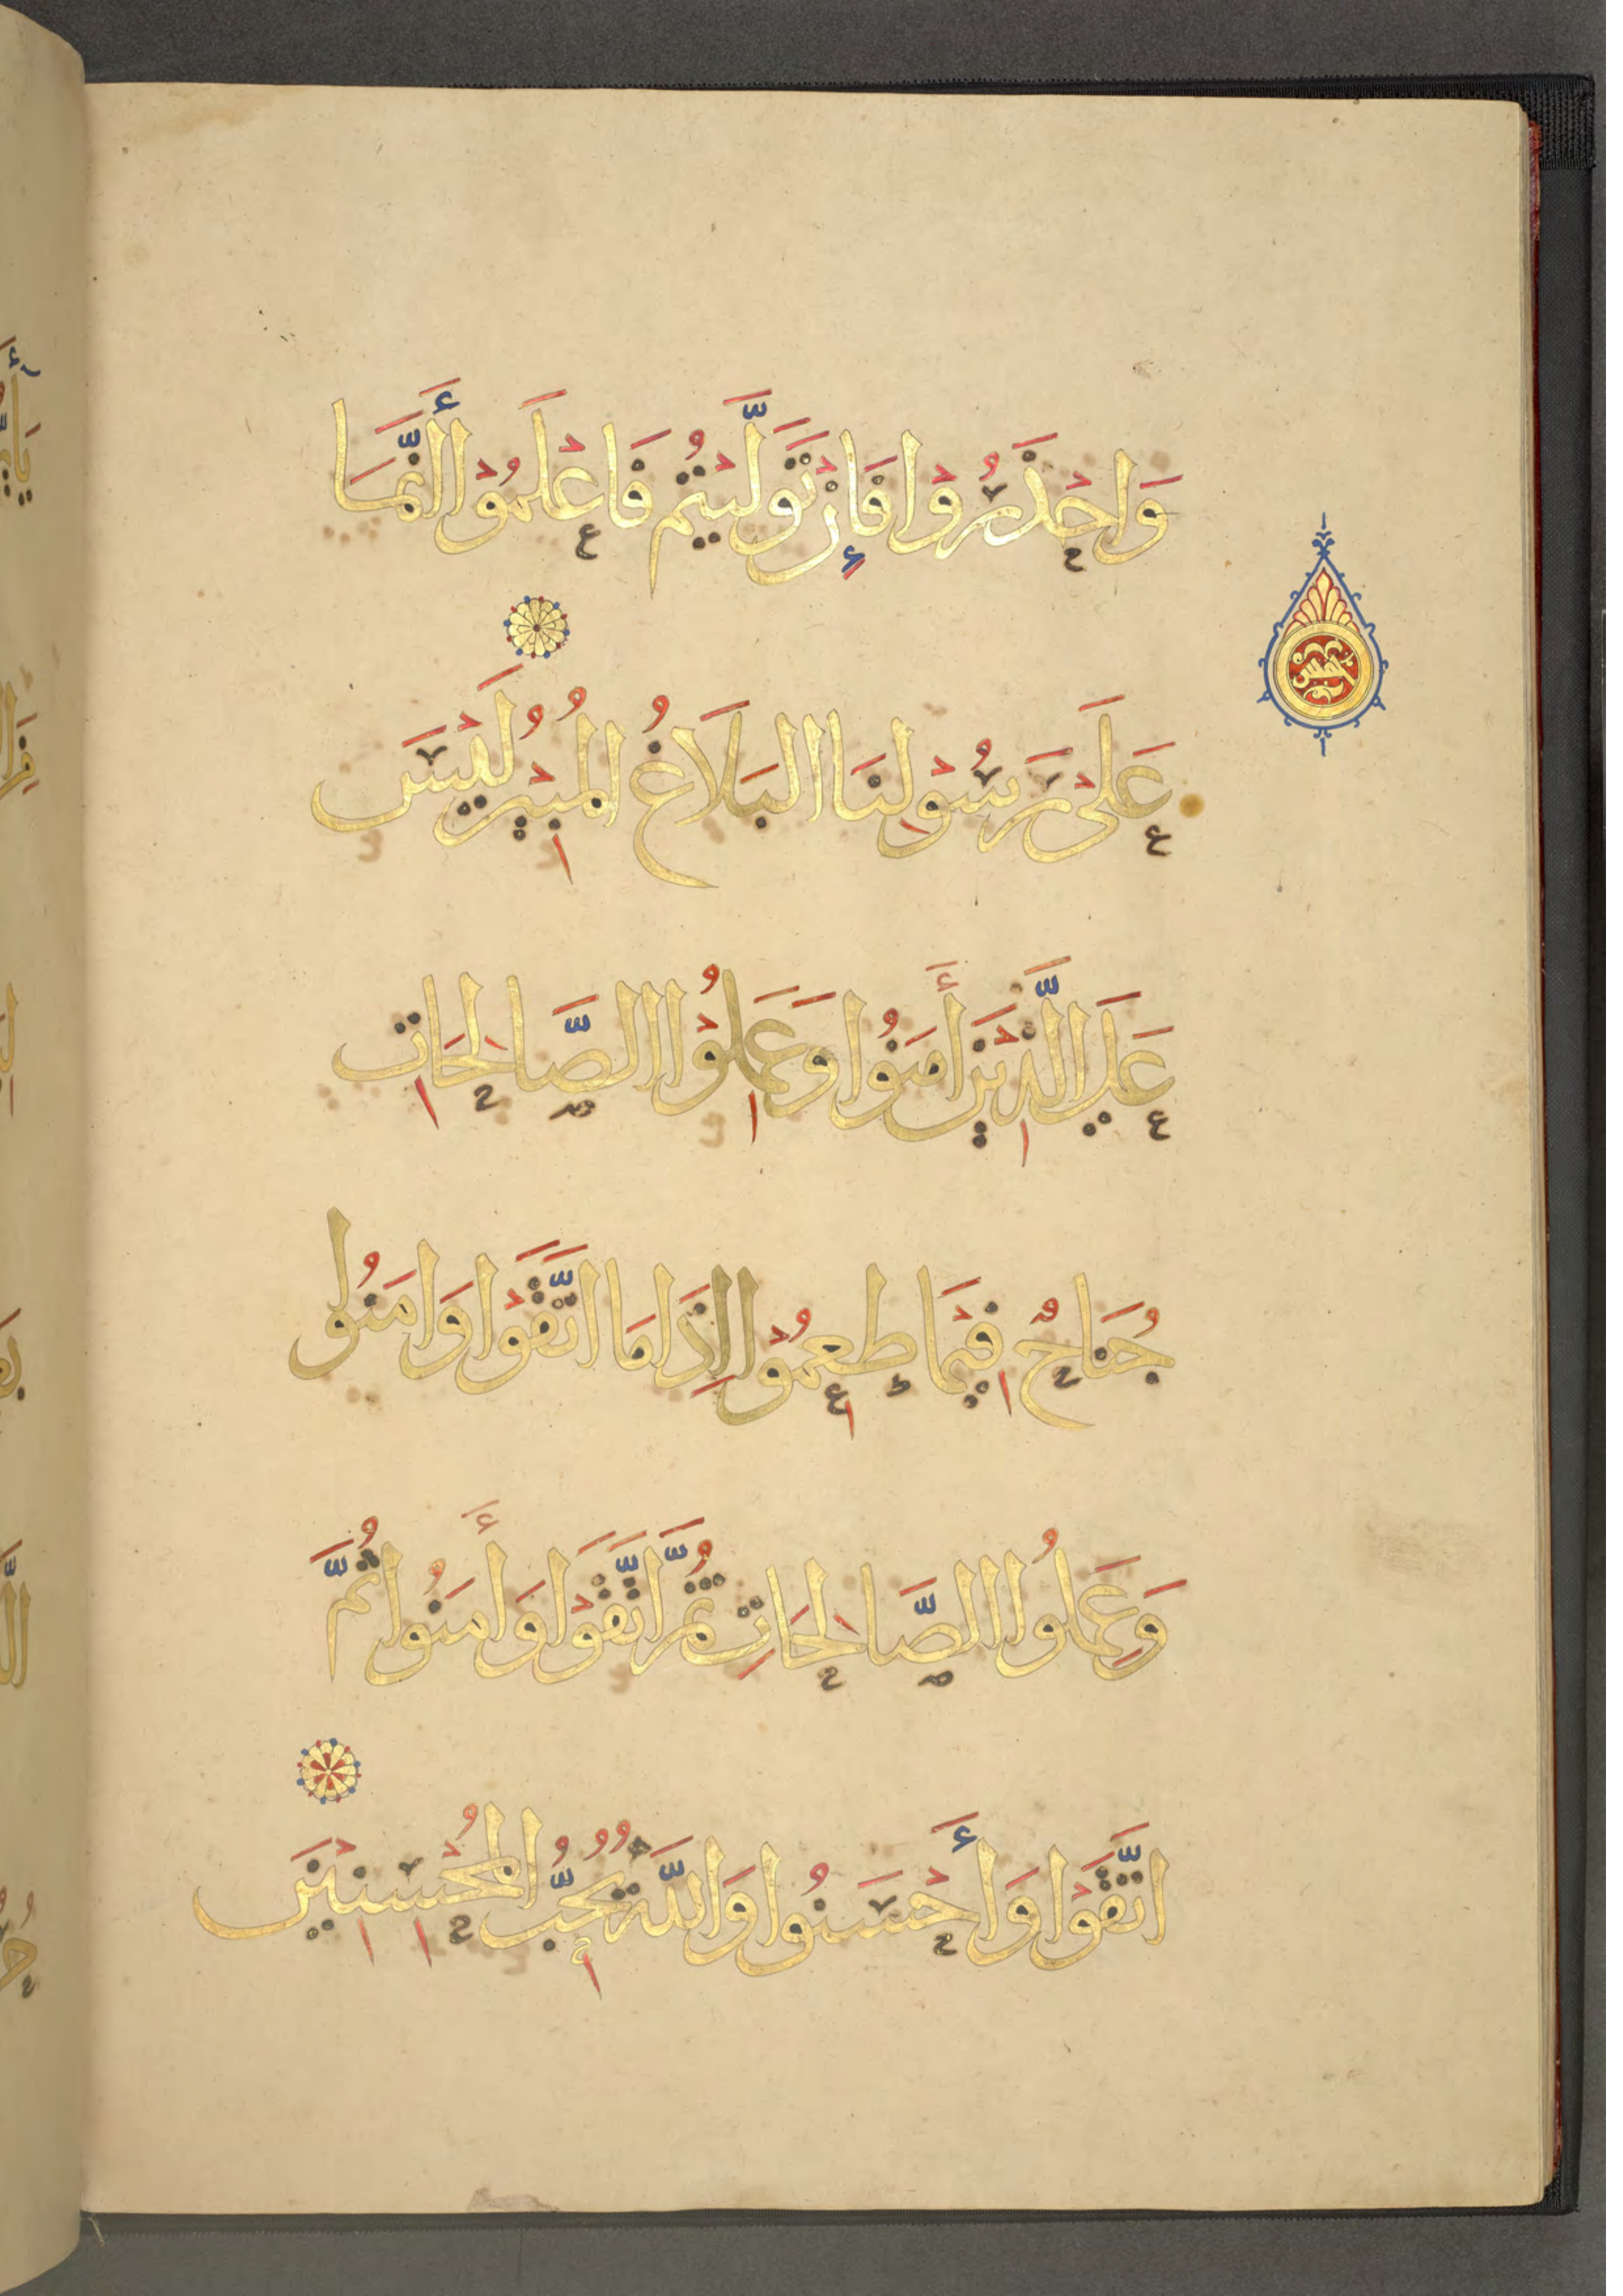 وَاحْذَرُوْا فَإِنْ تَوَلَّيْتُمْ فَاعْلَمُوْا أَنَّمَا
عَلَىْ رَسُوْلِنَا الْبَلَاغُ الْمُبِيْنُ لَيْسَ
عَلَى الَّذِيْنَ أَمَنُوا وَعَمِلُوْا الصَّالِحَاتِ
جُنَاحٌ فِيْمَا طَعِمُوْا إِذَا مَا اتَّقَوْا وَامَنُوا
وَعَمِلُوا الصَّالِحَاتِ ثُمَّ اتَّقَوْا وَأَمَنُوا ثُمَّ
اتَّقَوْا وَأَحْسَنُوا وَاللَّهُ يُحِبُّ الْمُحْسِنِيْنَ